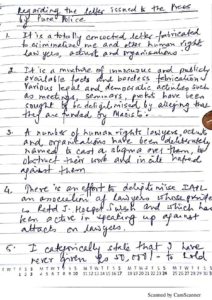 Regarding the letter issued to the Press
by Pune Police.
1. It is a totally concocted letter fabricated
to criminalise me and other human right
lawyers, activist and organisations.
2. It is a mixture of innocuous and publicly
available facts and baseless fabrication.
Various legal and democratic activities such
as meetings, seminars, protests have been
sought to be delegitimised by alleging that
they are funded by Maoists.
3. A number of human rights lawyers, activists
and organisations have been deliberately
named to cast a stigma over them, to
obstruct their work and incite hatred
against them.
4. There is an effort to delegitimise IAPL
an association of lawyers whose president
is Retd J. Hosbet Suresh and which has
been active in speaking up against
attacks on lawyers.
5. I categorically state that I have
never given Rs 50,000/- to
M T W T F S S M T W T F S S M T W T F S S M T W T F S S
Scanned by CamScanner